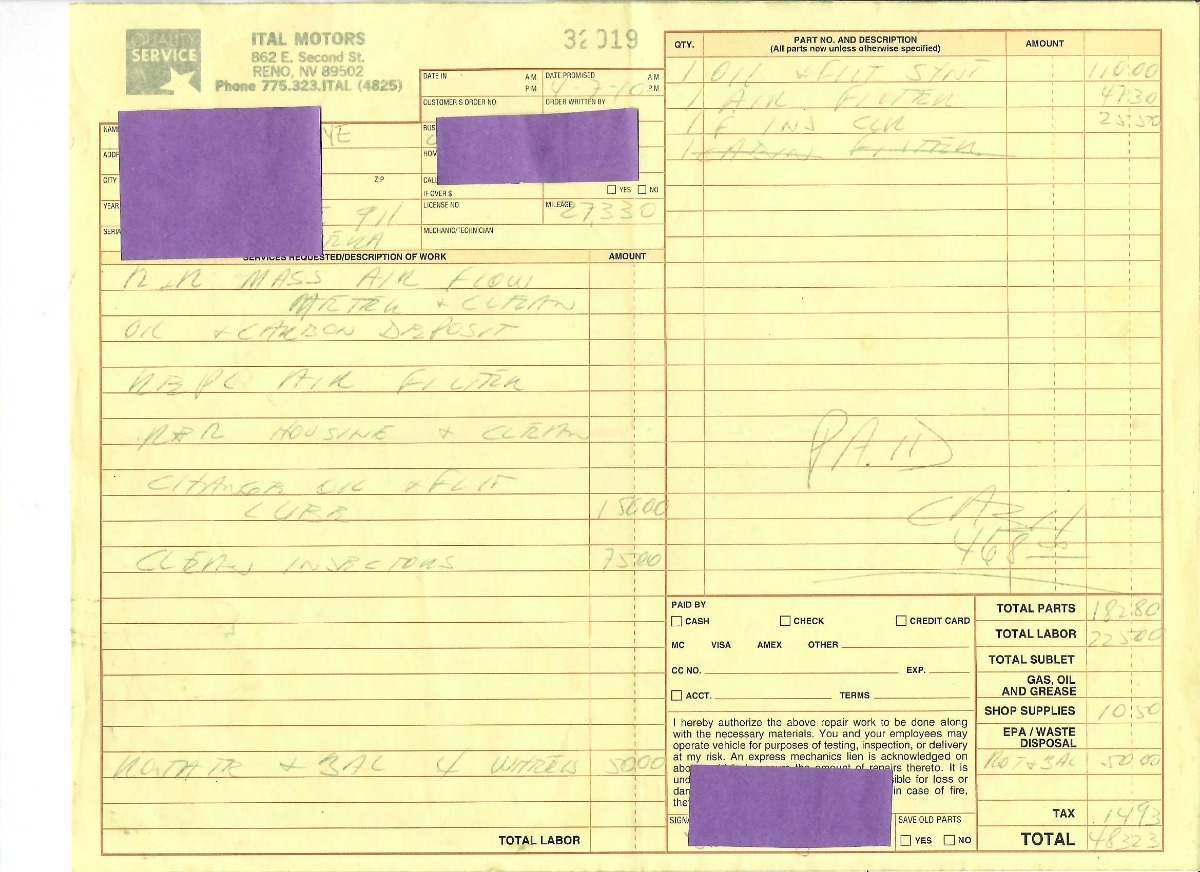 QUALITY
SERVICE
ITAL MOTORS
862 E. Second St.
RENO, NV 89502
Phone 775.323.ITAL (4825)
32019
DATE IN A.M. P.M.
DATE PROMISED A.M. P.M.
4-7-10
CUSTOMER'S ORDER NO.
ORDER WRITTEN BY
NAME
YE
BUS
ADD
HOM
CITY
ZIP
CALL
IF OVER $
YES NO
YEAR
911
LICENSE NO.
MILEAGE
27,330
SERIA
MECHANIC/TECHNICIAN
SERVICES REQUESTED/DESCRIPTION OF WORK AMOUNT
R&R MASS AIR FLOW
METER & CLEAN
OIL & CARBON DEPOSIT
REPL AIR FILTER
R&R HOUSINE & CLEAN
CHANGE OIL & FILT
LUBE 150 00
CLEAN INJECTORS 75 00
ROTATE & BAL 4 WHEELS 50 00
TOTAL LABOR
QTY. PART NO. AND DESCRIPTION AMOUNT
(All parts new unless otherwise specified)
1 OIL & FILT SYNT 110 00
1 AIR FILTER 47 30
1 F INJ CLR 25 50
1 CABIN FILTER
PAID
CASH
468 00
PAID BY
CASH CHECK CREDIT CARD
MC VISA AMEX OTHER
CC NO. EXP.
ACCT. TERMS
I hereby authorize the above repair work to be done along
with the necessary materials. You and your employees may
operate vehicle for purposes of testing, inspection, or delivery
at my risk. An express mechanics lien is acknowledged on
abo the amount of repairs thereto. It is
und ible for loss or
dam in case of fire,
the
SIGN
SAVE OLD PARTS
YES NO
TOTAL PARTS 182 80
TOTAL LABOR 225 00
TOTAL SUBLET
GAS, OIL
AND GREASE
SHOP SUPPLIES 10 50
EPA / WASTE
DISPOSAL
ROT & BAL 50 00
TAX 14 93
TOTAL 483 23